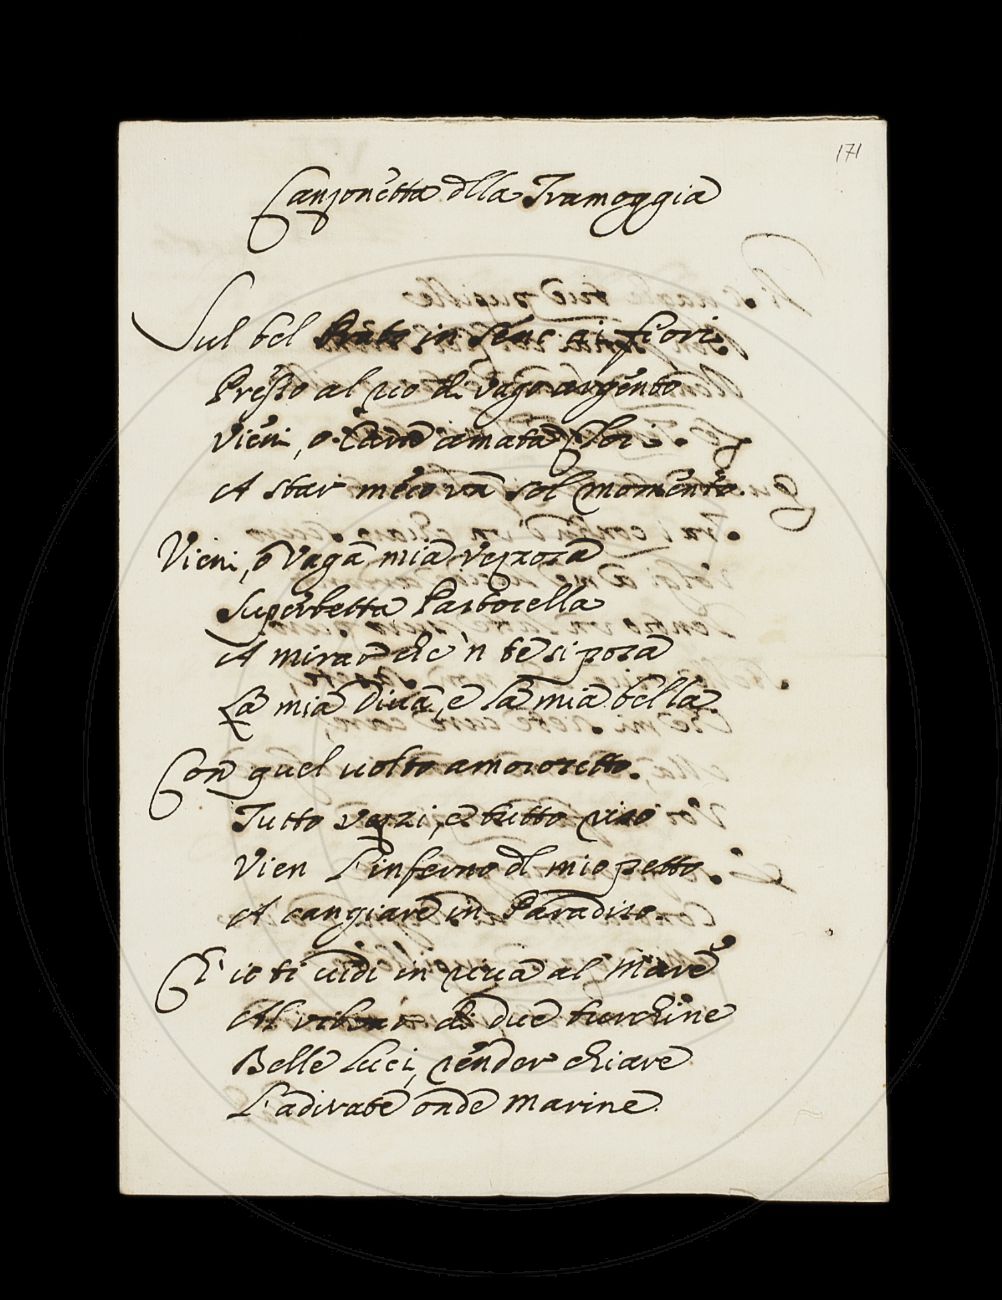 171
Canzonetta dlla Tramoggia
Sul bel Prato in seno ai fiori
Presso al rio dl vago argento
Vieni, o cara amata Clori
A star meco un sol momento.
Vieni, o vaga mia vezzosa
Superbetta Pastorella
A mirar che 'n te si posa
La mia Diva, e la mia bella
Con quel volto amorosetto.
Tutto vezzi, e tutto riso
Vien l'inferno dl mio petto.
A cangiare in Paradiso.
Ch' io ti vidi in riva al Mare
Al di due turchine
Belle Luci, render chiare
L'adirate onde marine.